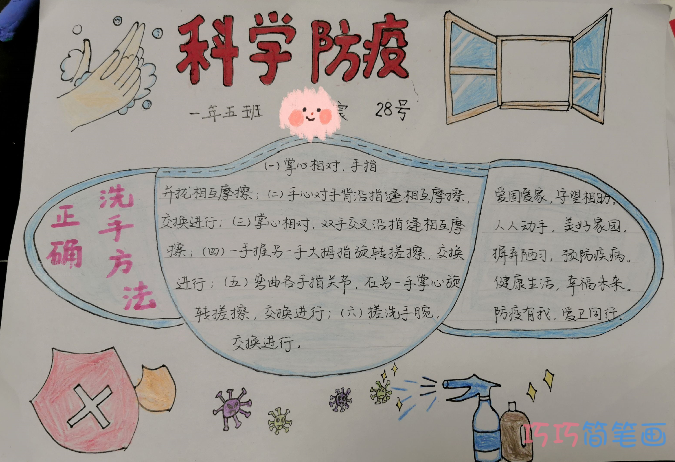 科学防疫
一年五班 28号
正确
洗手方法
(一)掌心相对,手指
并拢相互摩擦;(二)手心对手背沿指逢相互摩擦,
交换进行;(三)掌心相对,双手交叉沿指逢相互摩
擦;(四)一手握另一手大拇指旋转搓擦,交换
进行;(五)弯曲各手指关节,在另一手掌心旋
转搓擦,交换进行;(六)搓洗手腕,
交换进行。
爱国爱家,守望相助,
人人动手,美好家园,
摒弃陋习,预防疾病,
健康生活,幸福未来,
防疫有我,爱卫同行。
巧巧简笔画